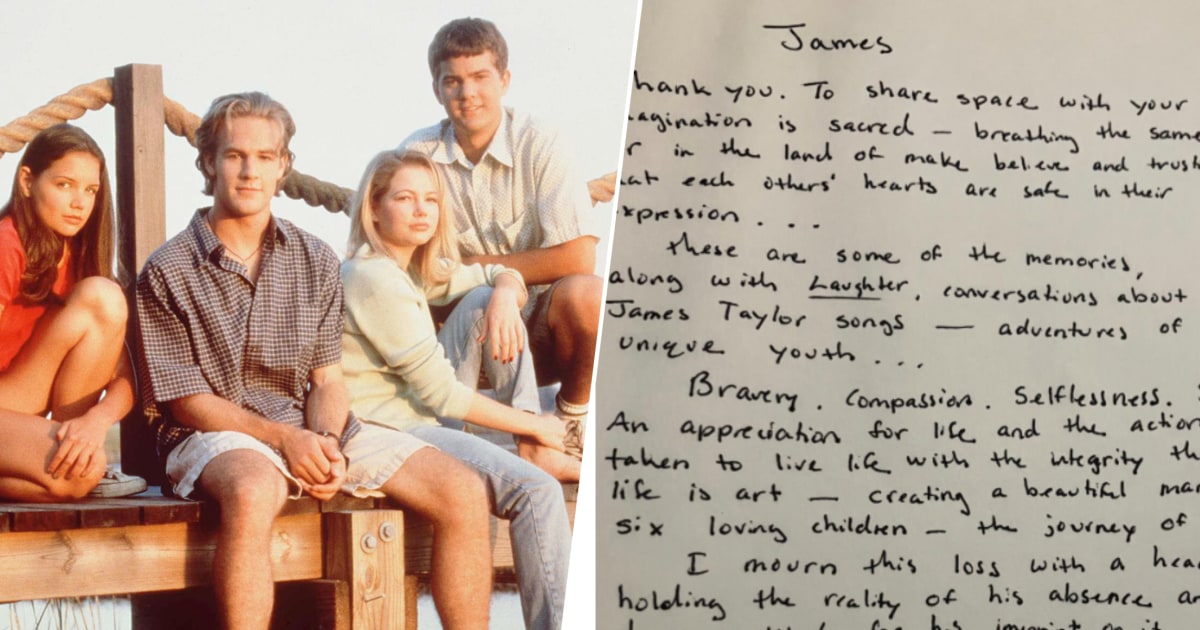 James
hank you. To share space with your
agination is sacred — breathing the same
r in the land of make believe and trust
at each others' hearts are safe in their
xpression . . .
these are some of the memories,
along with Laughter, conversations about
James Taylor songs — adventures of
unique youth . . .
Bravery. Compassion. Selflessness.
An appreciation for life and the action
taken to live life with the integrity th
life is art — creating a beautiful mar
six loving children — the journey of
I mourn this loss with a hea
holding the reality of his absence an
for his imprint on it